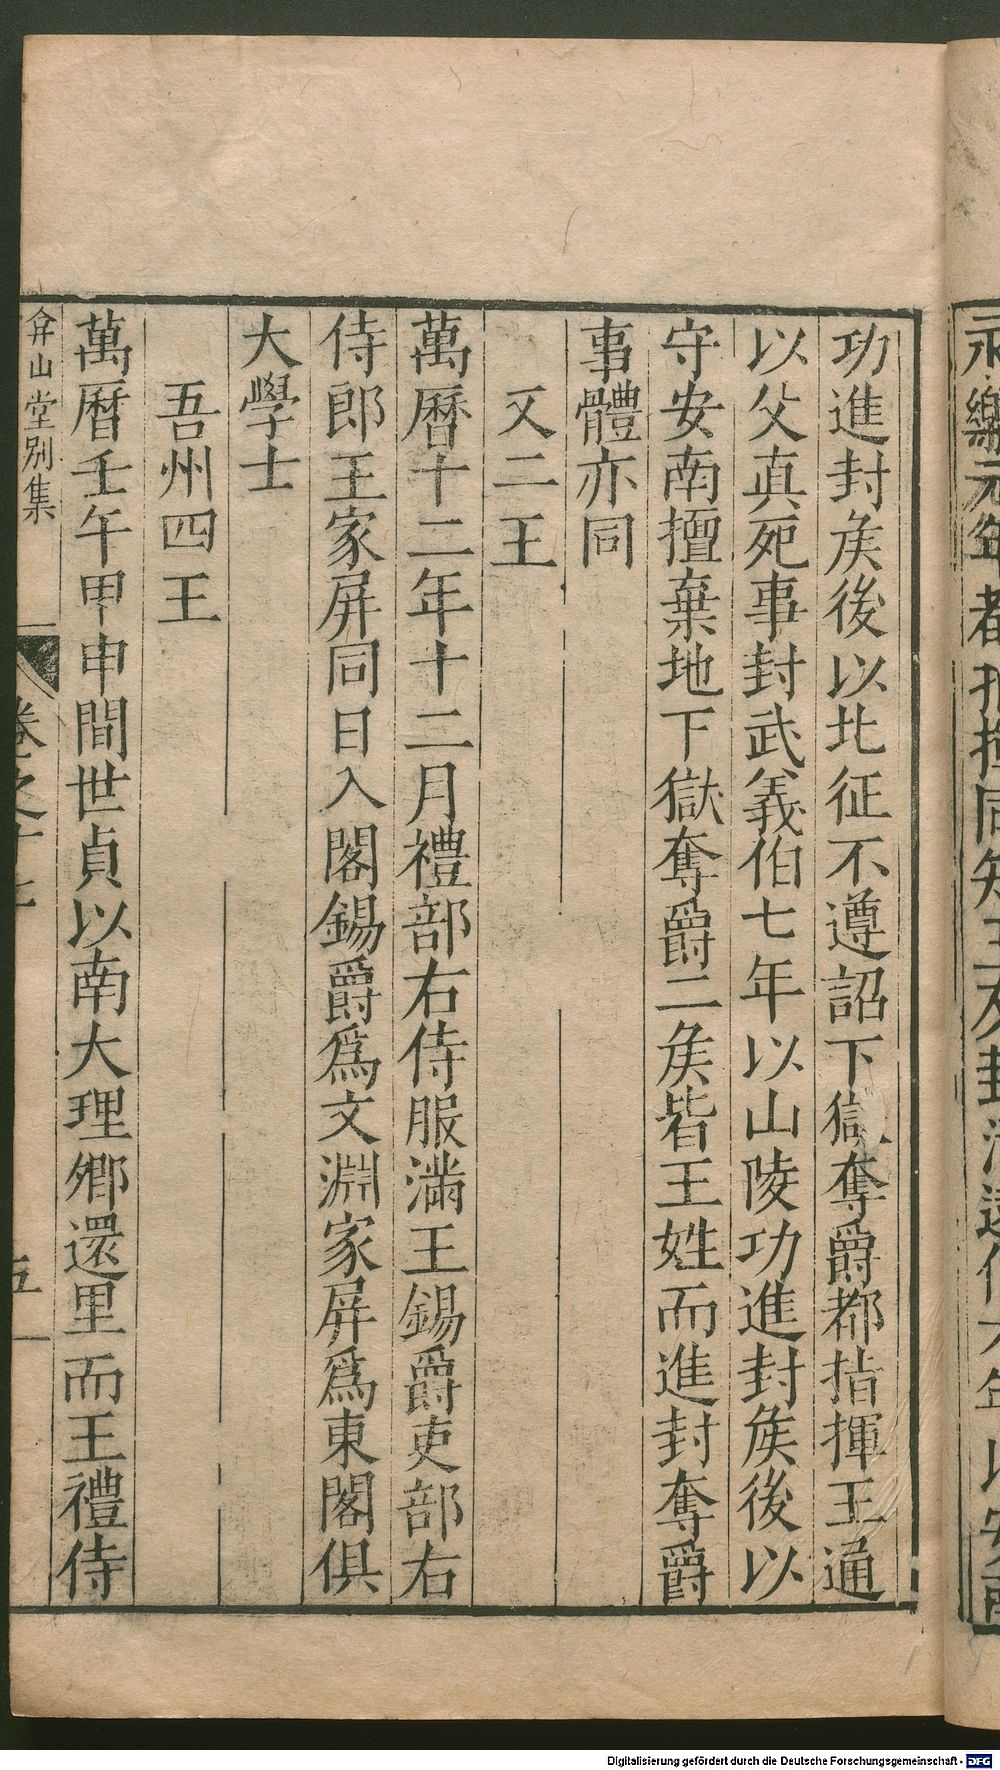 永樂元年都指揮同知王友封清遠伯六年以安南
功進封矦後以北征不遵詔下獄奪爵都指揮王通
以父真死事封武義伯七年以山陵功進封矦後以
守安南擅棄地下獄奪爵二矦皆王姓而進封奪爵
事體亦同
又二王
萬曆十二年十二月禮部右侍服滿王錫爵吏部右
侍郎王家屏同日入閣錫爵爲文淵家屏爲東閣俱
大學士
吾州四王
萬曆壬午甲申間世貞以南大理鄉還里而王禮侍
弇山堂別集
卷之十七
五
Digitalisierung gefördert durch die Deutsche Forschungsgemeinschaft - DFG